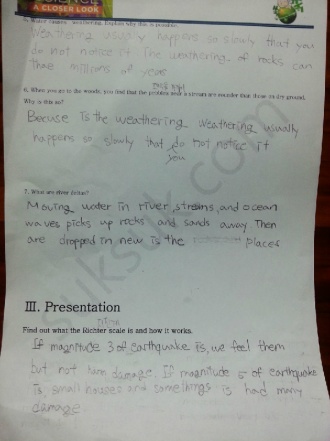 SCIENCE
A CLOSER LOOK
5. Water causes weathering. Explain why this is possible.
Weathering usually happens so slowly that you
do not notice it. The weathering of rocks can
three millions of year
6. When you go to the woods, you find that the pebbles near a stream are rounder than those on dry ground.
Why is this so?
Becuse Is the weathering. Weathering usually
happens so slowly that do not notice it
you
7. What are river deltas?
Moving water in river, strems, and ocean
waves picks up rocks and sands away Then
are dropped in new is the places
III. Presentation
Find out what the Richter scale is and how it works.
If magnitude 3 of earthquake is, we feel them
but not have damage. If magnitude 5 of earthquake
is, small houses and somethings is had many
damage